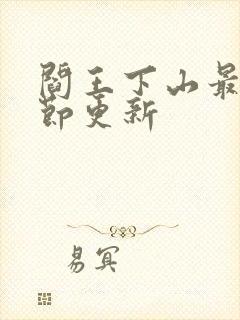 閻王下山最
節更新
易冥